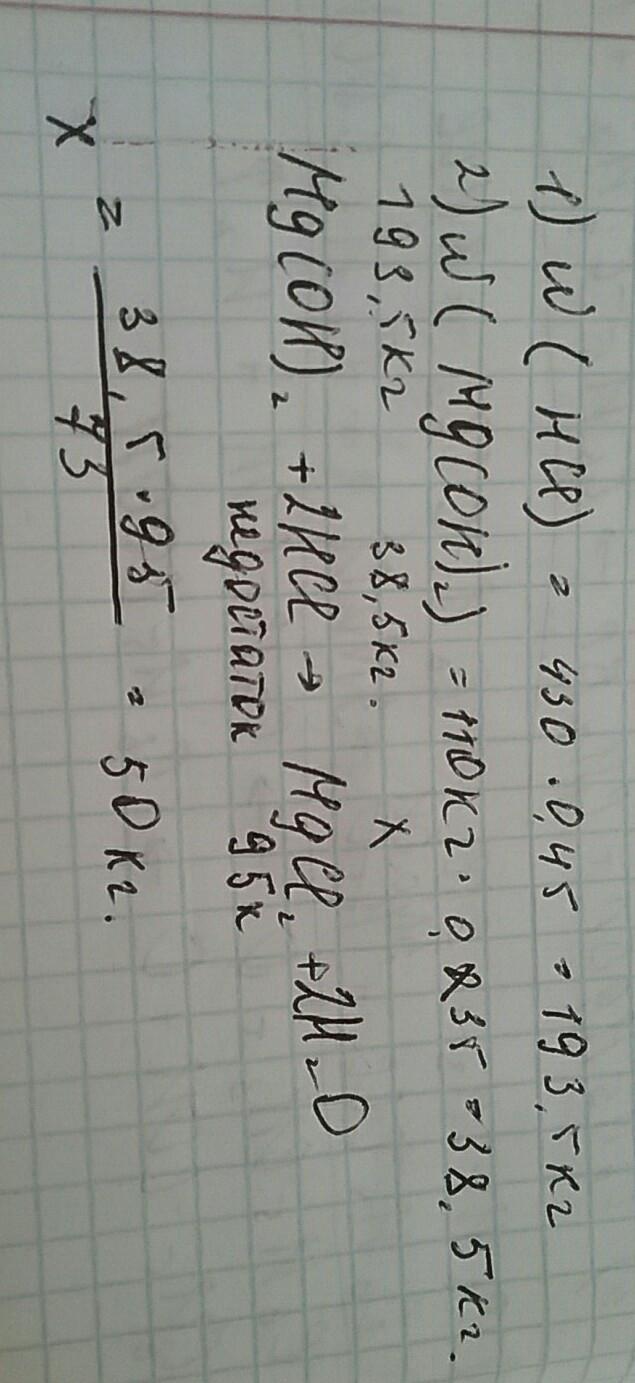 1) w(HCl) = 430 · 0,45 = 193,5 кг
2) w(Mg(OH)₂) = 110 кг · 0,35 = 38,5 кг.
193,5 кг 38,5 кг. x
Mg(OH)₂ + 2HCl → MgCl₂ + 2H₂O
недостаток 95 к
x = 38,5 · 95 / 73 = 50 кг.